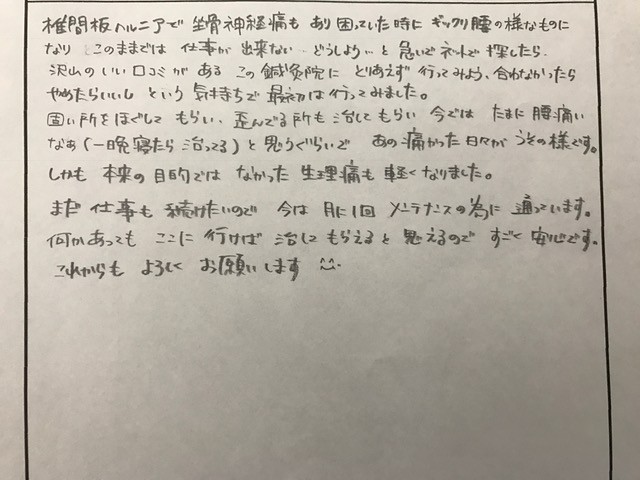 椎間板ヘルニアで 坐骨神経痛も あり 困っていた時に ギックリ腰の様なものに
なり このままでは 仕事が 出来ない…どうしよう…と 急いで ネットで 探したら、
沢山の いい 口コミが ある この 鍼灸院に とりあえず 行ってみよう、合わなかったら
やめたらいいし という 気持ちで 最初は 行ってみました。
固い所を ほぐして もらい、歪んでる所も 治して もらい 今では たまに 腰痛い
なぁ(一晩寝たら 治ってる)と 思うぐらいで あの 痛かった 日々が うその様です。
しかも 本来の 目的では なかった 生理痛も 軽く なりました。
まだ 仕事も 続けたいので 今は 月に1回 メンテナンスの為に 通っています。
何かあっても ここに 行けば 治して もらえると 思えるので すごく 安心です。
これからも よろしく お願いします ^^